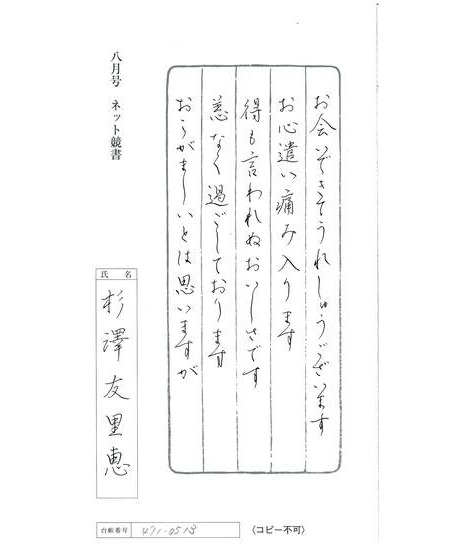 お会いできてうれしゅうございます
お心遣い痛み入ります
得も言われぬおいしさです
恙なく過ごしております
おこがましいとは思いますが
八月号 ネット競書
氏名
杉澤友里恵
台帳番号 471-0513
〈コピー不可〉